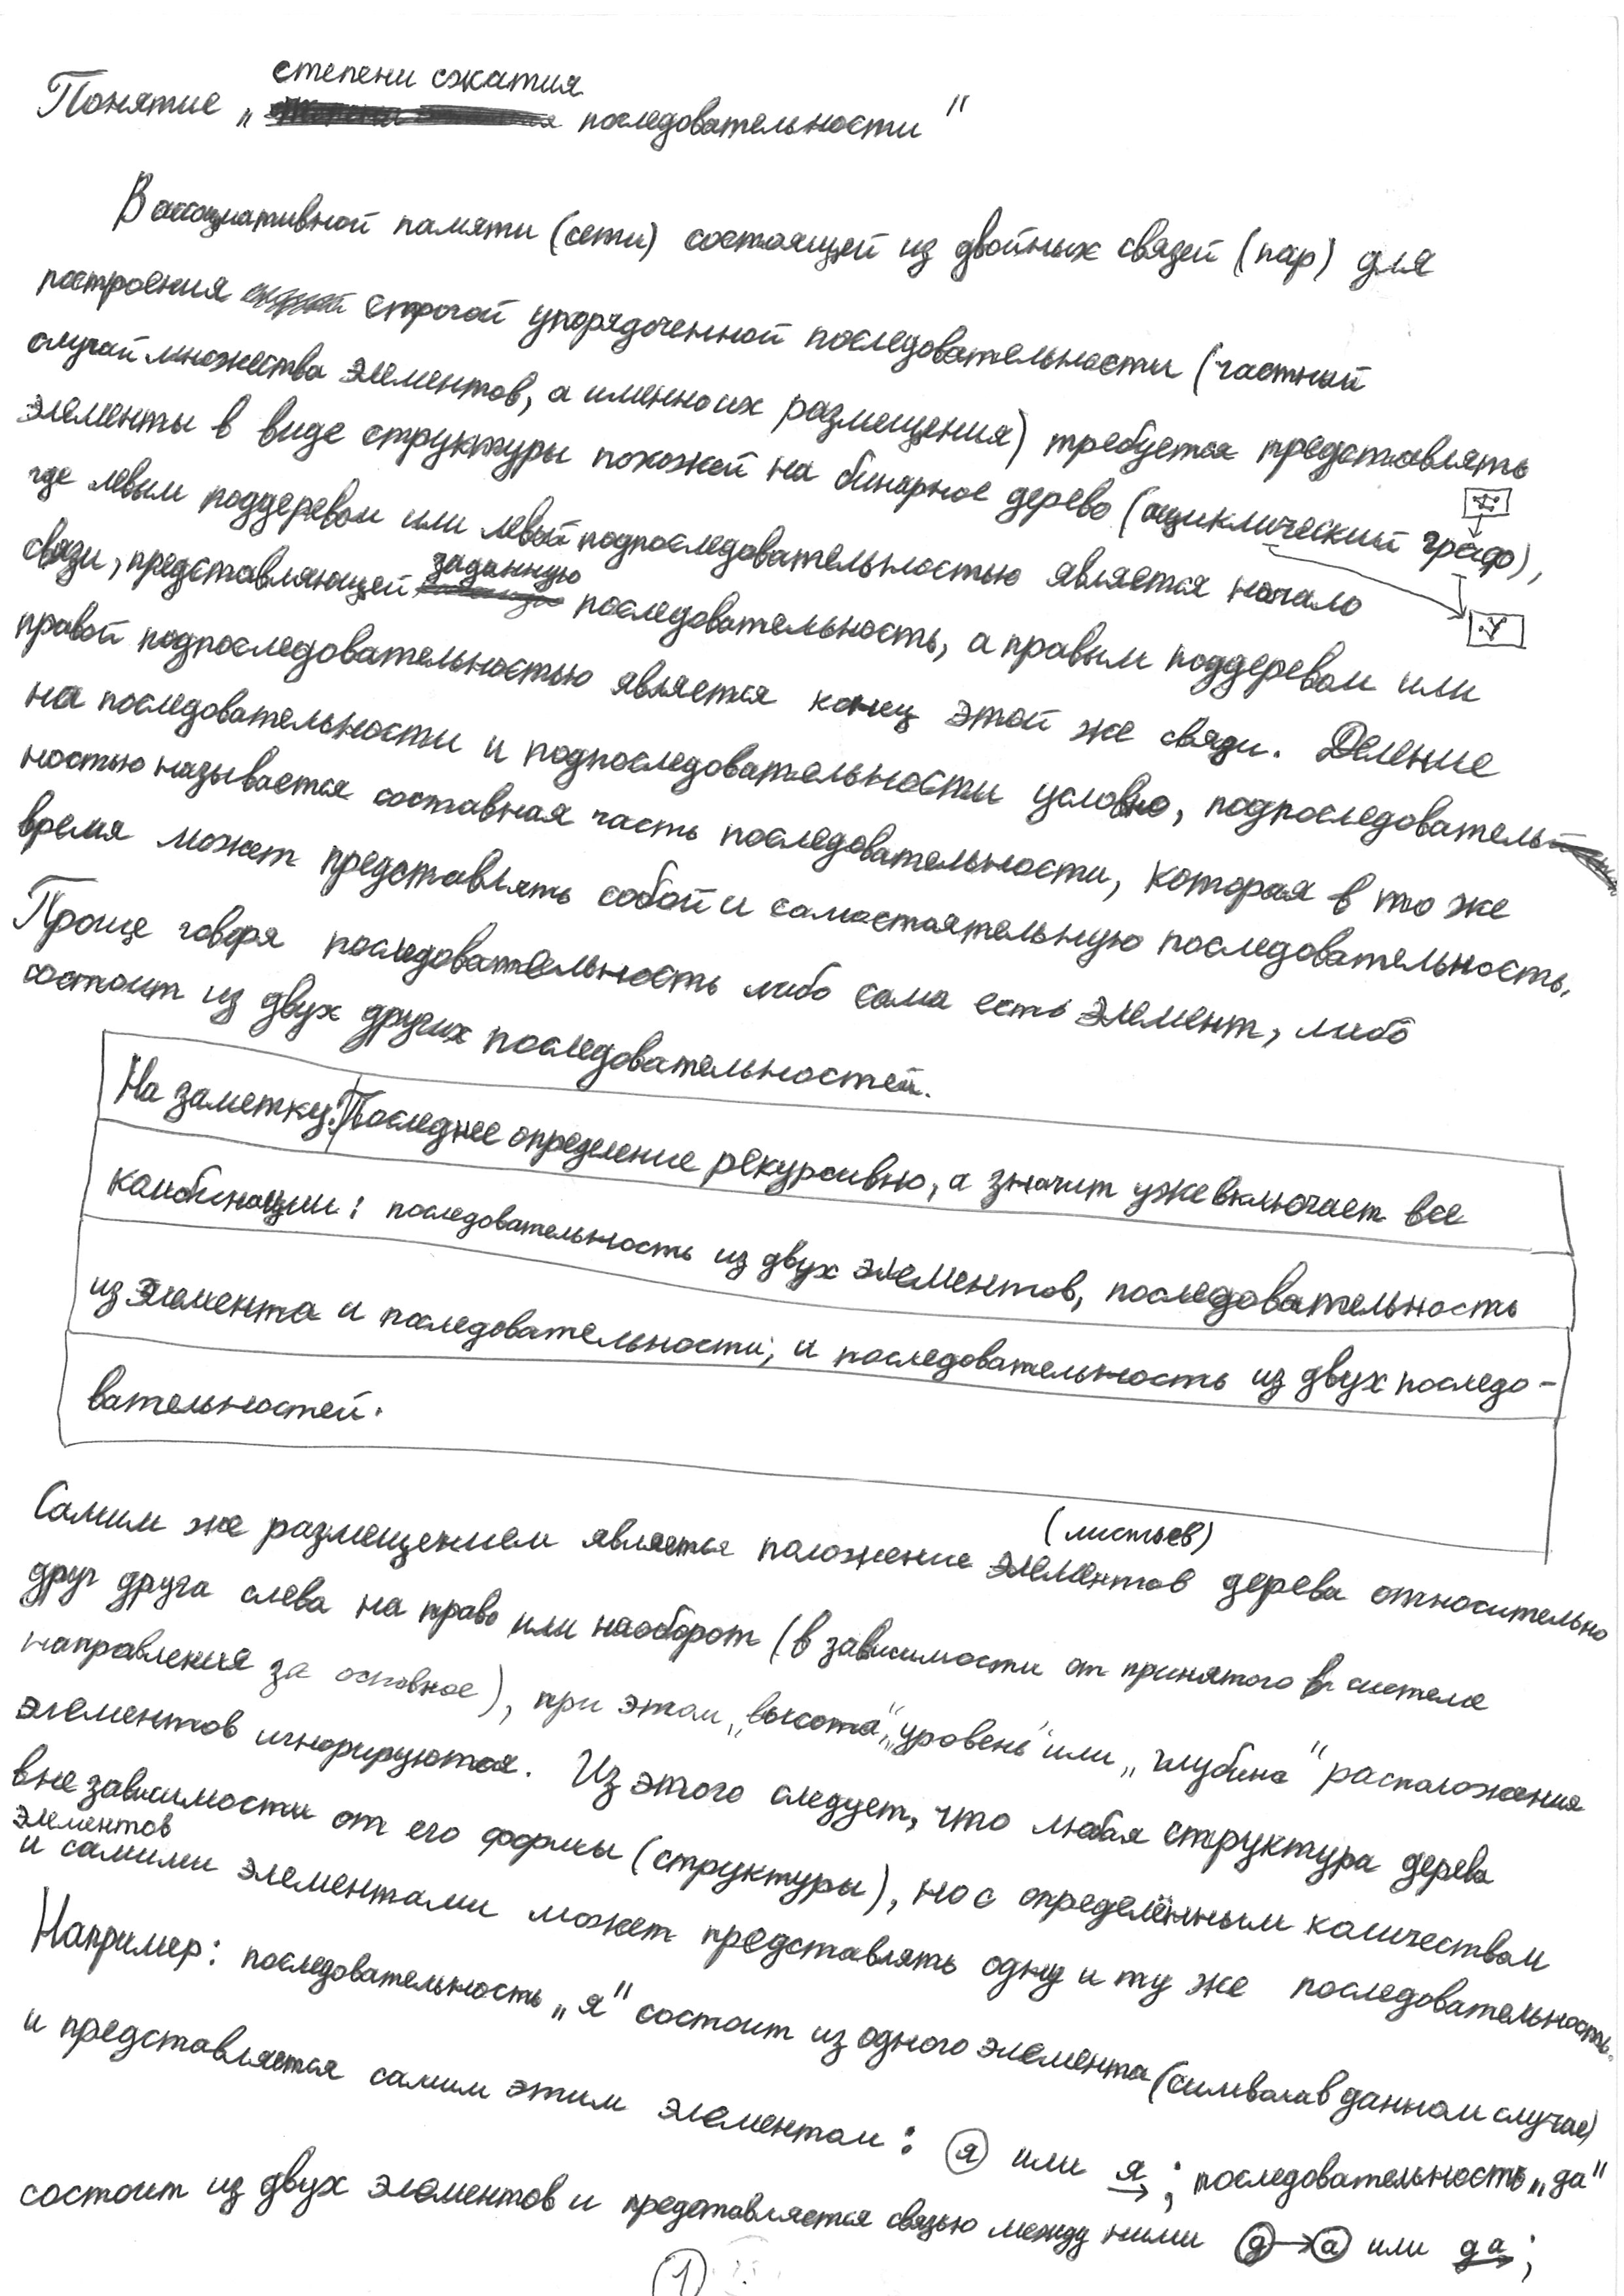 степени сжатия
Понятие „ последовательности"
В ассоциативной памяти (сети) состоящей из двойных связей (пар) для
построения строгой упорядоченной последовательности (частный
случай множества элементов, а именно их размещения) требуется представлять
элементы в виде структуры похожей на бинарное дерево (ациклический граф),
где левым поддеревом или левой подпоследовательностью является начало
связи, представляющей заданную последовательность, а правым поддеревом или
правой подпоследовательностью является конец этой же связи. Деление
на последовательности и подпоследовательности условно, подпоследователь-
ностью называется составная часть последовательности, которая в то же
время может представлять собой и самостоятельную последовательность.
Проще говоря последовательность либо сама есть элемент, либо
состоит из двух других последовательностей.
На заметку: Последнее определение рекурсивно, а значит уже включает все
комбинации: последовательность из двух элементов, последовательность
из элемента и последовательности; и последовательность из двух последо-
вательностей.
Самим же размещением является положение элементов (листьев) дерева относительно
друг друга слева на право или наоборот (в зависимости от принятого в системе
направления за основное), при этом „высота", „уровень" или „глубина" расположения
элементов игнорируются. Из этого следует, что любая структура дерева
вне зависимости от его формы (структуры), но с определённым количеством
элементов
и самими элементами может представлять одну и ту же последовательность.
Например: последовательность „я" состоит из одного элемента (символа в данном случае)
и представляется самим этим элементом: я или я; последовательность „да"
состоит из двух элементов и представляется связью между ними д→а или да;
1